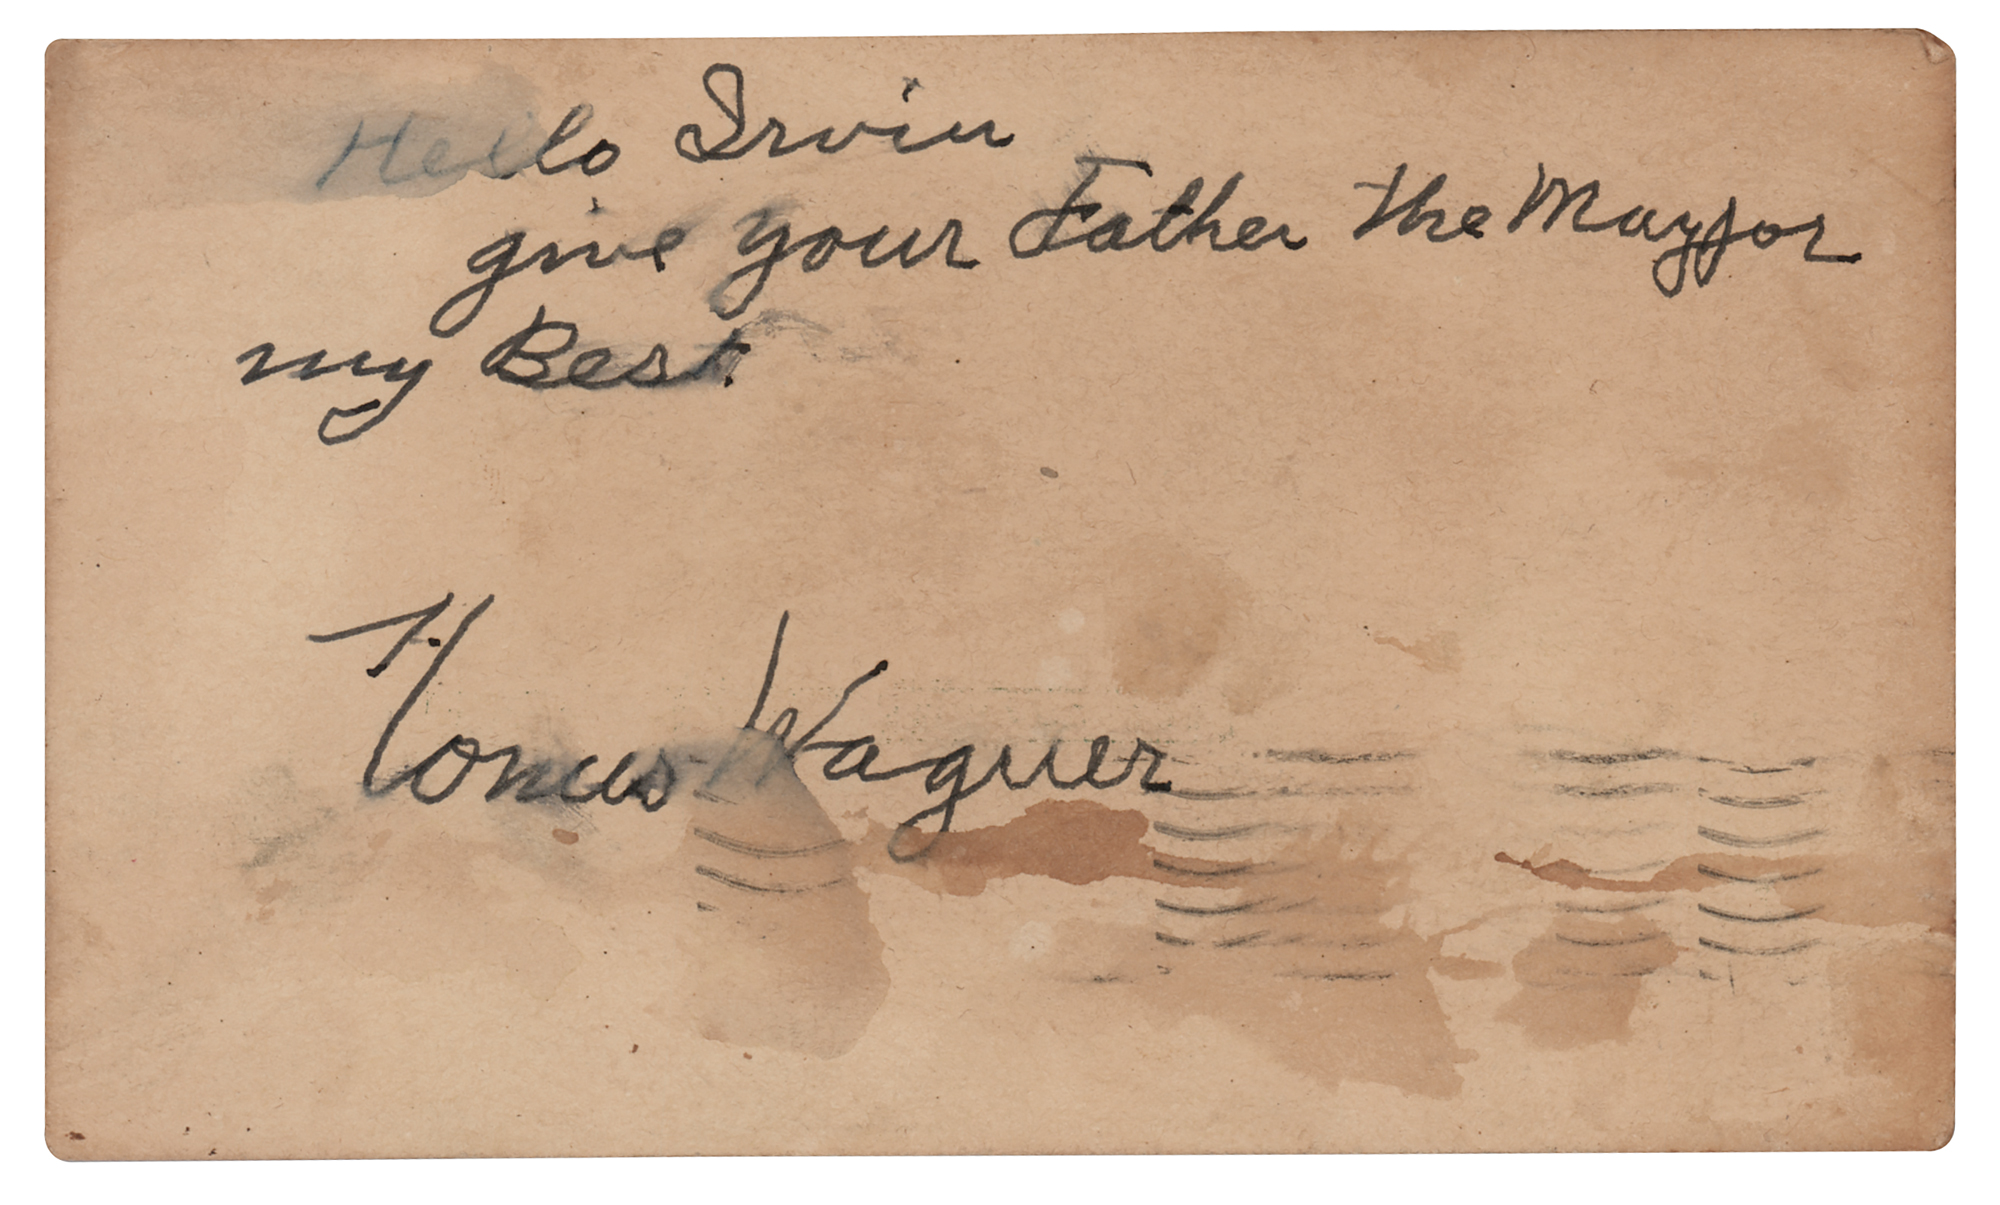 Hello Irvin
give your Father the Mayjor
my Best.
Honus Wagner